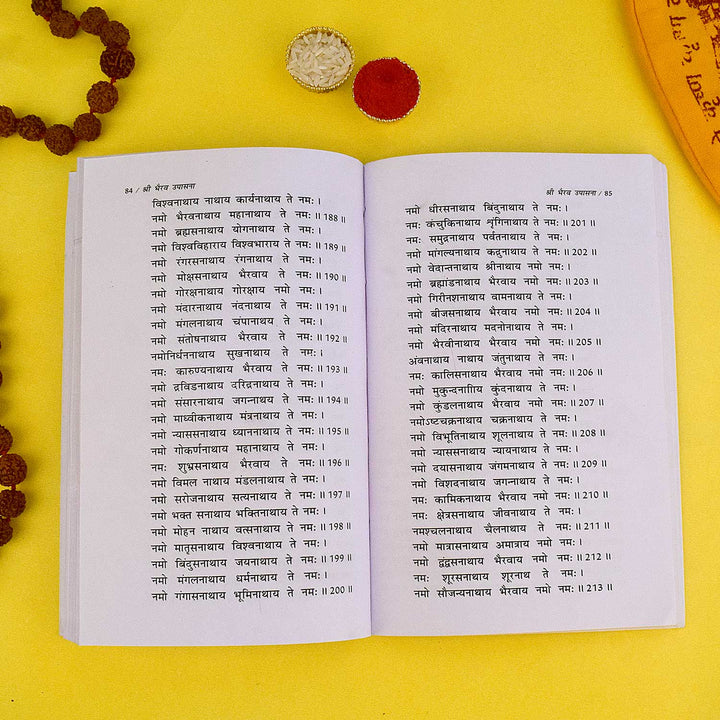 84 / श्री भैरव उपासना
विश्वनाथाय नाथाय कार्यनाथाय ते नमः ।
नमो भैरवनाथाय महानाथाय ते नमः ॥ 188 ॥
नमो ब्रह्मसनाथाय योगनाथाय ते नमः ।
नमो विश्वविहाराय विश्वभाराय ते नमः ॥ 189 ॥
नमो रंगरसनाथाय रंगनाथाय ते नमः ।
नमो मोक्षसनाथाय भैरवाय ते नमः ॥ 190 ॥
नमो गोरक्षनाथाय गोरक्षाय नमो नमः ।
नमो मंदारनाथाय नंदनाथाय ते नमः ॥ 191 ॥
नमो मंगलनाथाय चंपानाथाय ते नमः ।
नमो संतोषनाथाय भैरवाय ते नमः ॥ 192 ॥
नमोनिर्धननाथाय सुखनाथाय ते नमः ।
नमः कारुण्यनाथाय भैरवाय ते नमः ॥ 193 ॥
नमो द्रविडनाथाय दरिद्रनाथाय ते नमः ।
नमो संसारनाथाय जगन्नाथाय ते नमः ॥ 194 ॥
नमो माध्वीकनाथाय मंत्रनाथाय ते नमः ।
नमो न्याससनाथाय ध्याननाथाय ते नमः ॥ 195 ॥
नमो गोकर्णनाथाय महानाथाय ते नमः ।
नमः शुभ्रसनाथाय भैरवाय ते नमः ॥ 196 ॥
नमो विमल नाथाय मंडलनाथाय ते नमः ।
नमो सरोजनाथाय सत्यनाथाय ते नमः ॥ 197 ॥
नमो भक्त सनाथाय भक्तिनाथाय ते नमः ।
नमो मोहन नाथाय वत्सनाथाय ते नमः ॥ 198 ॥
नमो मातृसनाथाय विश्वनाथाय ते नमः ।
नमो बिंदुसनाथाय जयनाथाय ते नमः ॥ 199 ॥
नमो मंगलनाथाय धर्मनाथाय ते नमः ।
नमो गंगासनाथाय भूमिनाथाय ते नमः ॥ 200 ॥
श्री भैरव उपासना / 85
नमो धीरसनाथाय बिंदुनाथाय ते नमः ।
नमः कंचुकिनाथाय शृंगिनाथाय ते नमः ॥ 201 ॥
नमः समुद्रनाथाय पर्वतनाथाय ते नमः ।
नमो मांगल्यनाथाय कदुनाथाय ते नमः ॥ 202 ॥
नमो वेदान्तनाथाय श्रीनाथाय नमो नमः ।
नमो ब्रह्मांडनाथाय भैरवाय नमो नमः ॥ 203 ॥
नमो गिरीनशनाथाय वामनाथाय ते नमः ।
नमो बीजसनाथाय भैरवाय नमो नमः ॥ 204 ॥
नमो मंदिरनाथाय मदनोनाथाय ते नमः ।
नमो भैरवीनाथाय भैरवाय नमो नमः ॥ 205 ॥
अंवनाथाय नाथाय जंतुनाथाय ते नमः ।
नमः कालिसनाथाय भैरवाय नमो नमः ॥ 206 ॥
नमो मुकुन्दनाााािय कुंदनाथाय ते नमः ।
नमो कुंडलनाथाय भैरवाय नमो नमः ॥ 207 ॥
नमोऽष्टचक्रनाथाय चक्रनाथाय ते नमः ।
नमो विभूतिनाथाय शूलनाथाय ते नमः ॥ 208 ॥
नमो न्याससनाथाय न्यायनाथाय ते नमः ।
नमो दयासनाथाय जंगमनाथाय ते नमः ॥ 209 ॥
नमो विशदनाथाय जगन्नाथाय ते नमः ।
नमः कामिकनाथाय भैरवाय नमो नमः ॥ 210 ॥
नमः क्षेत्रसनाथाय जीवनाथाय ते नमः ।
नमश्चलनाथाय चैलनाथाय ते नमः ॥ 211 ॥
नमो मात्रासनाथाय अमात्राय नमो नमः ।
नमो द्वंद्वसनाथाय भैरवाय नमो नमः ॥ 212 ॥
नमः शूरसनाथाय शूरनाथ ते नमः ।
नमो सौजन्यनाथाय भैरवाय नमो नमः ॥ 213 ॥